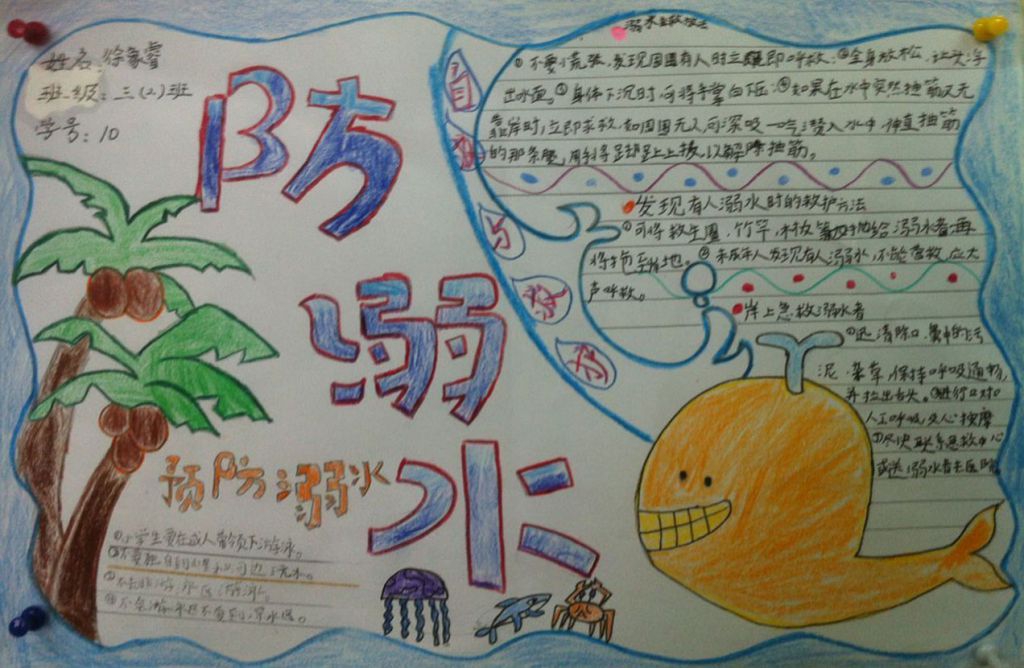 姓名:徐象睿
班级:三(2)班
学号:10
防
溺
水
预防溺水
①小学生要在成人带领下游泳。
②不要独自到河边玩水。
③不去非游泳区游泳。
④不会游泳者不要到深水区。
溺水自救方法
①不要慌张,发现周围有人时立即呼救;②全身放松,让头浮
出水面。③身体下沉时,可将手掌向下压;④如果在水中突然抽筋又无
靠岸时,立即求救,如周围无人,可深吸一口气潜入水中,伸直抽筋
的那条腿,用手将脚趾向上扳,以解除抽筋。
自
救
与
救
护
发现有人溺水时的救护方法
①可将救生圈、竹竿、木板等抛给溺水者,再
将拖至岸地。②未成年人发现有人溺水,不能营救,应大
声呼救。
岸上急救溺水者
①迅清除口、鼻中的污
泥、杂草,保持呼吸通畅,
并拉出舌头。②进行口对
人工呼吸及心按摩
③尽快联系急救中心
或送溺水者去医院